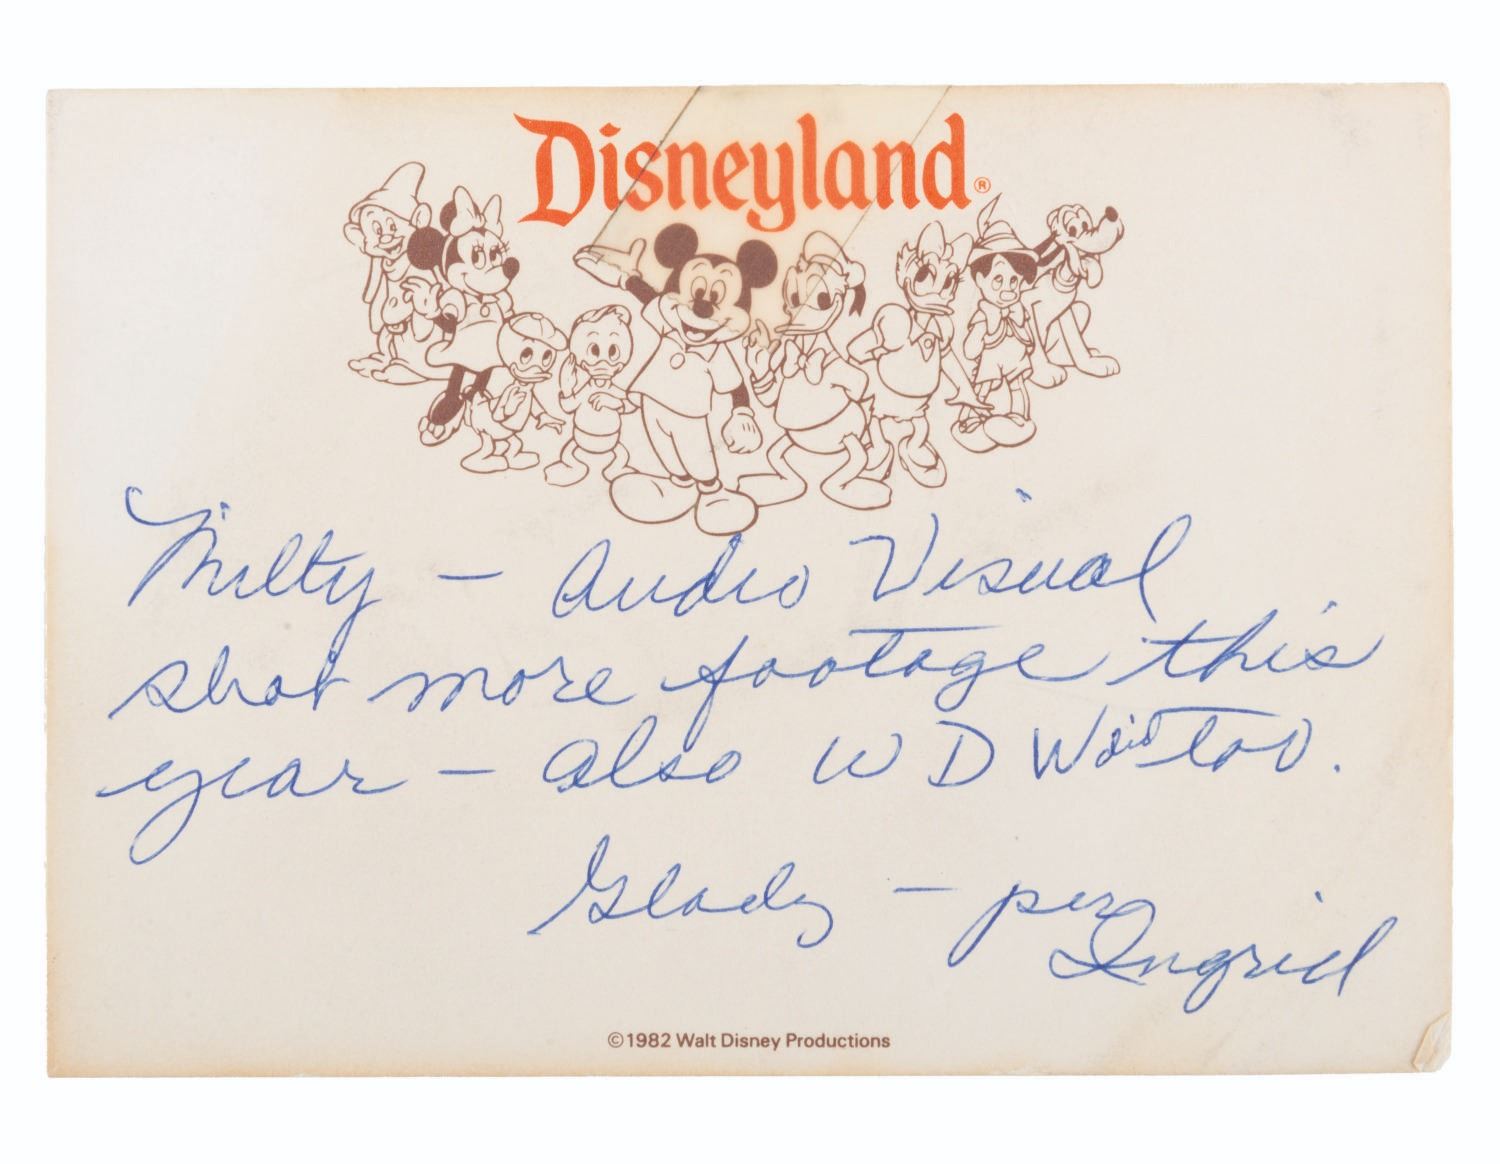 Disneyland®
Milty — Audio Visual
shot more footage this
year — also WDW did too.
Gladys — per
Ingrid
©1982 Walt Disney Productions